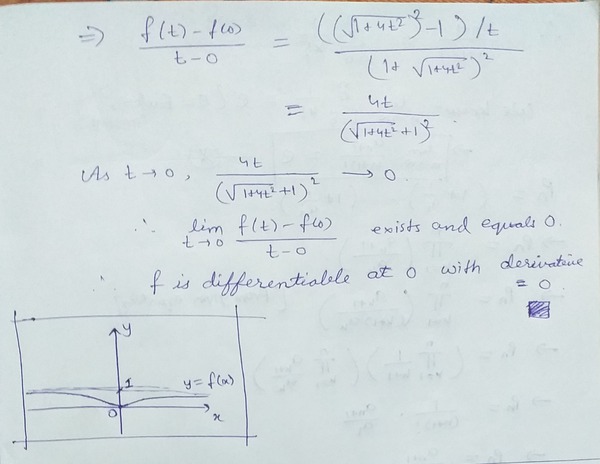 ⇒ (f(t) − f(0))/(t − 0) = (((√1+4t²)² − 1)/t)/(1 + √1+4t²)²
= 4t/(√1+4t² + 1)².
As t → 0, 4t/(√1+4t² + 1)² → 0.
∴ lim t→0 (f(t) − f(0))/(t − 0) exists and equals 0.
∴ f is differentiable at 0 with derivative
= 0.
y
1
y = f(x)
0
x